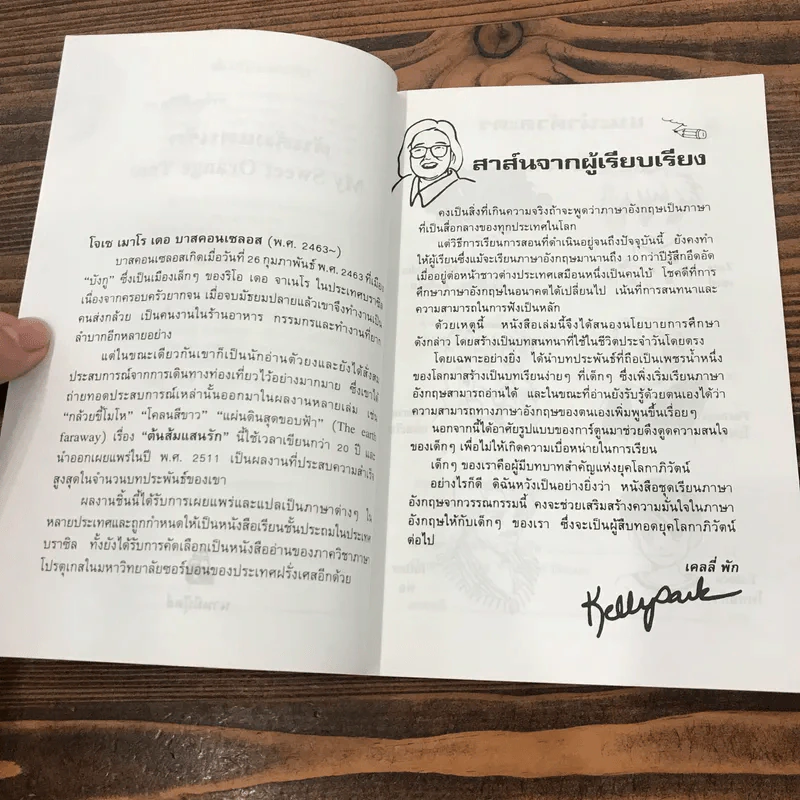 โจเซ เมาโร เดอ บาสคอนเซลอส (พ.ศ. 2463~)
บาสคอนเซลอสเกิดเมื่อวันที่ 26 กุมภาพันธ์ พ.ศ. 2463 ที่เมือง
“บังกู” ซึ่งเป็นเมืองเล็กๆ ของริโอ เดอ จาเนโร ในประเทศบราซิล
เนื่องจากครอบครัวยากจน เมื่อจบมัธยมปลายแล้วเขาจึงทำงานเป็น
คนส่งกล้วย เป็นคนงานในร้านอาหาร กรรมกรและทำงานที่ยาก
ลำบากอีกหลายอย่าง
แต่ในขณะเดียวกันเขาก็เป็นนักอ่านตัวยงและยังได้สั่งสม
ประสบการณ์จากการเดินทางท่องเที่ยวไว้อย่างมากมาย ซึ่งเขาได้
ถ่ายทอดประสบการณ์เหล่านั้นออกมาในผลงานหลายเล่ม เช่น
“กล้วยขี้โมโห” “โคลนสีขาว” “แผ่นดินสุดขอบฟ้า” (The earth
faraway) เรื่อง “ต้นส้มแสนรัก” นี้ใช้เวลาเขียนกว่า 20 ปี และ
นำออกเผยแพร่ในปี พ.ศ. 2511 เป็นผลงานที่ประสบความสำเร็จ
สูงสุดในจำนวนบทประพันธ์ของเขา
ผลงานชิ้นนี้ได้รับการเผยแพร่และแปลเป็นภาษาต่างๆ ใน
หลายประเทศและถูกกำหนดให้เป็นหนังสือเรียนชั้นประถมในประเทศ
บราซิล ทั้งยังได้รับการคัดเลือกเป็นหนังสืออ่านของภาควิชาภาษา
โปรตุเกสในมหาวิทยาลัยซอร์บอนของประเทศฝรั่งเศสอีกด้วย
สาส์นจากผู้เรียบเรียง
คงเป็นสิ่งที่เกินความจริงถ้าจะพูดว่าภาษาอังกฤษเป็นภาษา
ที่เป็นสื่อกลางของทุกประเทศในโลก
แต่วิธีการเรียนการสอนที่ดำเนินอยู่จนถึงปัจจุบันนี้ ยังคงทำ
ให้ผู้เรียนซึ่งแม้จะเรียนภาษาอังกฤษมานานถึง 10 กว่าปีรู้สึกอึดอัด
เมื่ออยู่ต่อหน้าชาวต่างประเทศเสมือนหนึ่งเป็นคนใบ้ โชคดีที่การ
ศึกษาภาษาอังกฤษในอนาคตได้เปลี่ยนไป เน้นที่การสนทนาและ
ความสามารถในการฟังเป็นหลัก
ด้วยเหตุนี้ หนังสือเล่มนี้จึงได้สนองนโยบายการศึกษา
ดังกล่าว โดยสร้างเป็นบทสนทนาที่ใช้ในชีวิตประจำวันโดยตรง
โดยเฉพาะอย่างยิ่ง ได้นำบทประพันธ์ที่ถือเป็นเพชรน้ำหนึ่ง
ของโลกมาสร้างเป็นบทเรียนง่ายๆ ที่เด็กๆ ซึ่งเพิ่งเริ่มเรียนภาษา
อังกฤษสามารถอ่านได้ และในขณะที่อ่านยังรับรู้ด้วยตนเองได้ว่า
ความสามารถทางภาษาอังกฤษของตนเองเพิ่มพูนขึ้นเรื่อยๆ
นอกจากนี้ได้อาศัยรูปแบบของการ์ตูนมาช่วยดึงดูดความสนใจ
ของเด็กๆ เพื่อไม่ให้เกิดความเบื่อหน่ายในการเรียน
เด็กๆ ของเราคือผู้มีบทบาทสำคัญแห่งยุคโลกาภิวัตน์
อย่างไรก็ดี ดิฉันหวังเป็นอย่างยิ่งว่า หนังสือชุดเรียนภาษา
อังกฤษจากวรรณกรรมนี้ คงจะช่วยเสริมสร้างความมั่นใจในภาษา
อังกฤษให้กับเด็กๆ ของเรา ซึ่งจะเป็นผู้สืบทอดยุคโลกาภิวัตน์
ต่อไป
เคลลี่ พัก
Kelly Park